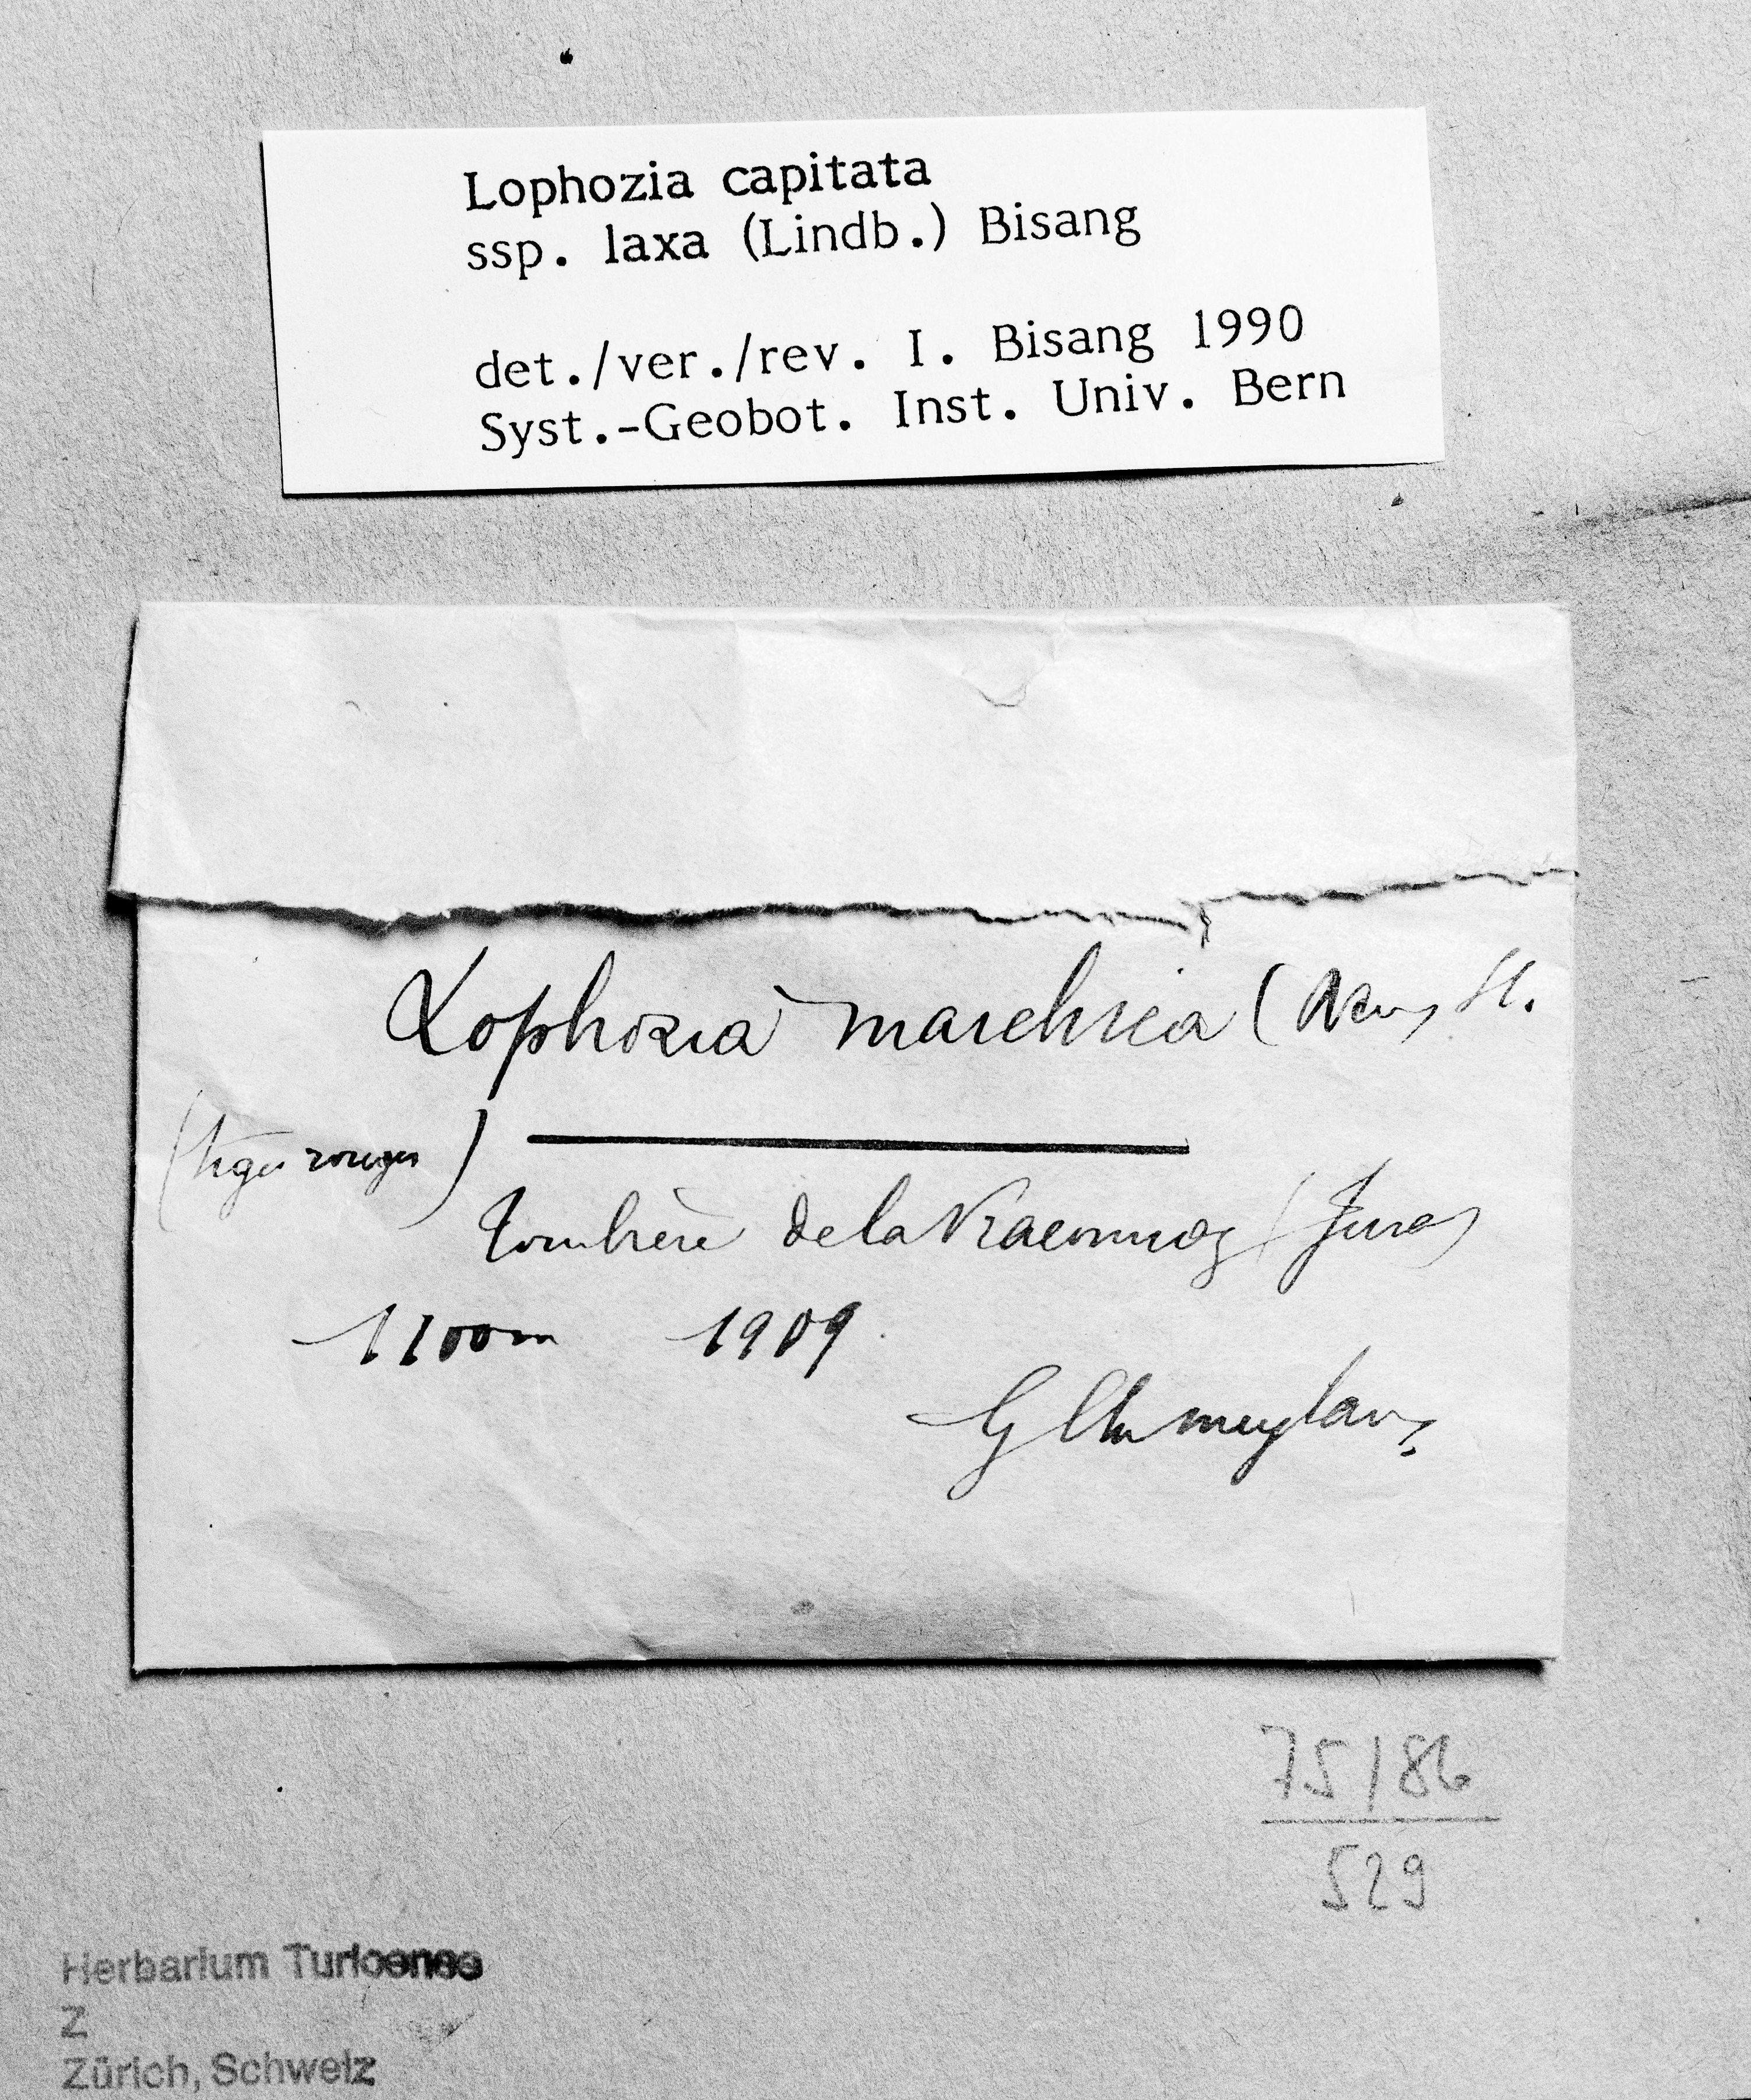 Lophozia capitata
ssp. laxa (Lindb.) Bisang
det./ver./rev. I. Bisang 1990
Syst.-Geobot. Inst. Univ. Bern
Lophozia marchica (Nees St.
(tiges rouges)
Tourbière de la Vraconnaz (Jura)
1100m 1909
Ch Meylan
75/86
529
Herbarium Turicense
Z
Zürich, Schweiz